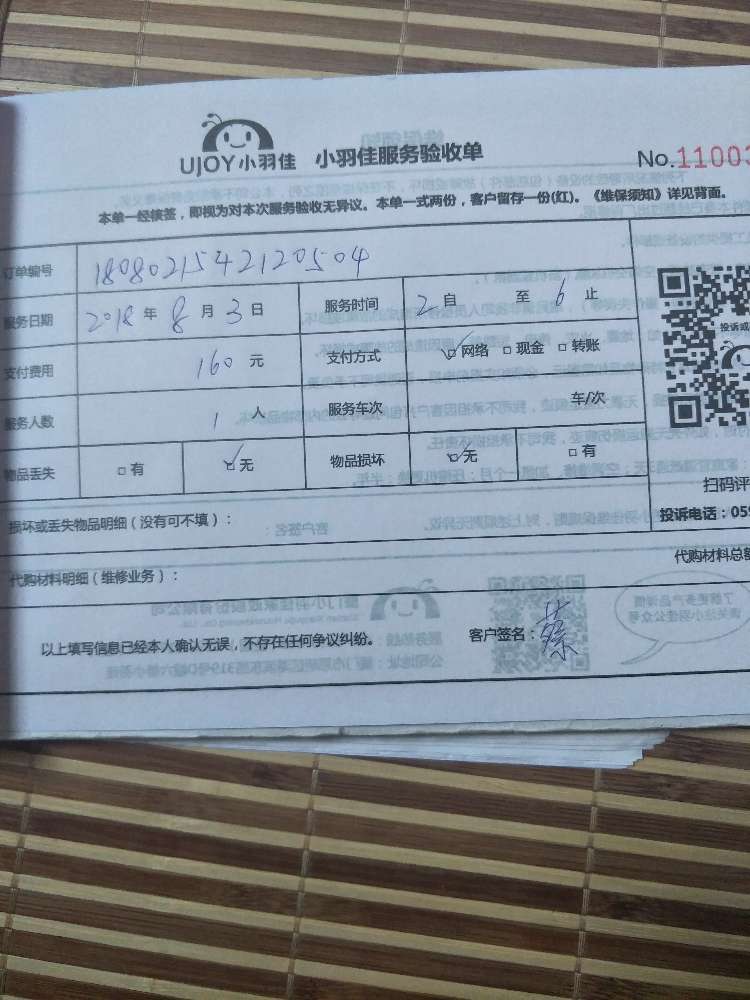 UJOY小羽佳 小羽佳服务验收单
No.11003
本单一经核签，即视为对本次服务验收无异议。本单一式两份，客户留存一份(红)。《维保须知》详见背面。
订单编号 1808021542120504
服务日期 2018 年 8 月 3 日 服务时间 2 自 至 6 止
支付费用 160 元 支付方式 ☑网络 □现金 □转账
服务人数 1 人 服务车次 车/次
物品丢失 □有 ☑无 物品损坏 ☑无 □有
扫码评
损坏或丢失物品明细（没有可不填）：
投诉电话：059
代购材料明细（维修业务）： 代购材料总额
以上填写信息已经本人确认无误，不存在任何争议纠纷。 客户签名：蔡